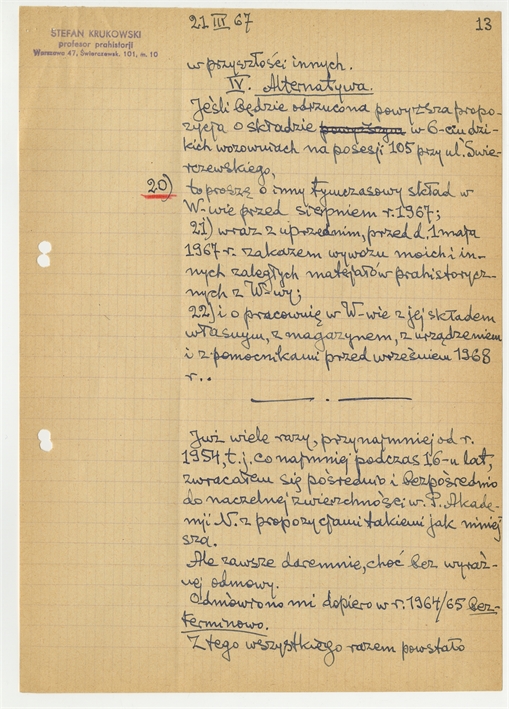 21 III 67
13
STEFAN KRUKOWSKI
profesor prahistorji
Warszawa 47, Świerczewsk. 101, m. 10
w przyszłości innych.
IV. Alternatywa.
Jeśli będzie odrzucona powyższa propo-
zycja o składzie powyższym w 6-ciu dzi-
kich wozowniach na posesji 105 przy ul. Świe-
rczewskiego,
20) to proszę o inny tymczasowy skład w
W-wie przed sierpniem r. 1967;
21) wraz z uprzednim, przed d. 1 maja
1967 r. zakazem wywozu moich i in-
nych zaległych materjałów prahistorycz-
nych z W-wy;
22) i o pracownię w W-wie z jej składem
własnym, z magazynem, z urządzeniem
i z pomocnikami przed wrześniem 1968
r..
Już wiele razy, przynajmniej od r.
1954, t.j. co najmniej podczas 16-u lat,
zwracałem się pośrednio i bezpośrednio
do naczelnej zwierzchności w P. Akade-
mji N. z propozycjami takiemi jak niniej
sza.
Ale zawsze daremnie, choć bez wyraź-
nej odmowy.
Odmówiono mi dopiero w r. 1964/65 bez-
terminowo.
Z tego wszystkiego razem powstało